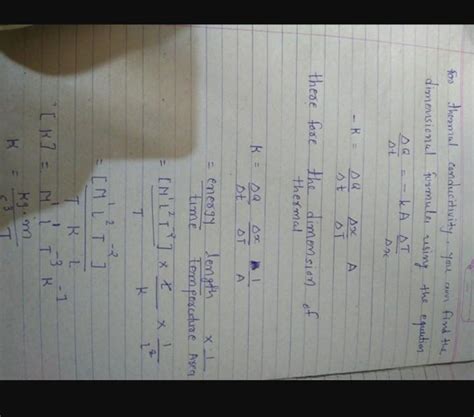 for thermal conductivity, you can find the
dimensional formula using the equation
ΔQ/Δt = -kA ΔT/Δx
-K = ΔQ/Δt Δx/ΔT A
there fore the dimension of
thermal
K = ΔQ/Δt Δx/ΔT 1/A
= energy/time length/temperature × 1/Area
= [M¹L²T⁻²]/T × L/K × 1/L²
= [M¹L²T⁻²]
T K L
[K] = M¹L¹T⁻³K⁻¹
K = kg.m/s³